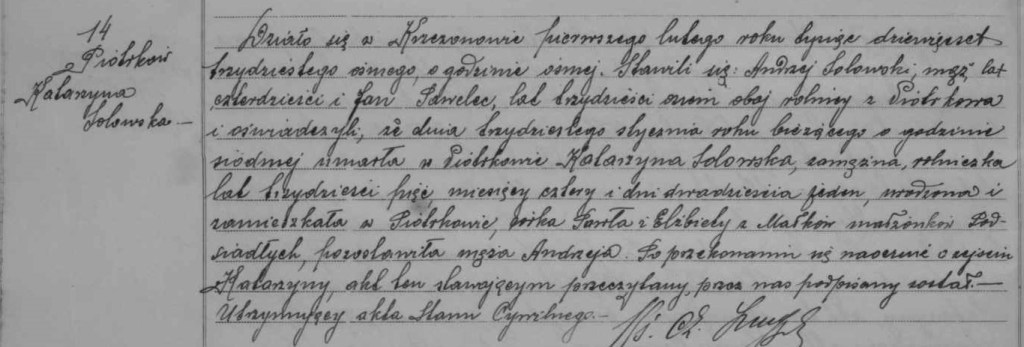 14
Piotrków
Katarzyna
Solowska. —
Działo się w Krzczonowie pierwszego lutego roku tysiąc dziewięćset
trzydziestego ósmego, o godzinie ósmej. Stawili się: Andrzej Solowski, mąż lat
czterdzieści i Jan Pawelec, lat trzydzieści osiem obaj rolnicy z Piotrkowa
i oświadczyli, że dnia trzydziestego stycznia roku bieżącego o godzinie
siódmej umarła w Piotrkowie Katarzyna Solowska, zamężna, rolniczka
lat trzydzieści pięć miesięcy cztery i dni dwadzieścia jeden, urodzona i
zamieszkała w Piotrkowie, córka Pawła i Elżbiety z Małków małżonków Pod-
siadłych, pozostawiła męża Andrzeja. Po przekonaniu się naocznie o zejściu
Katarzyny, akt ten stawającym przeczytany, przez nas podpisany został. —
Utrzymujący akta Stanu Cywilnego. —